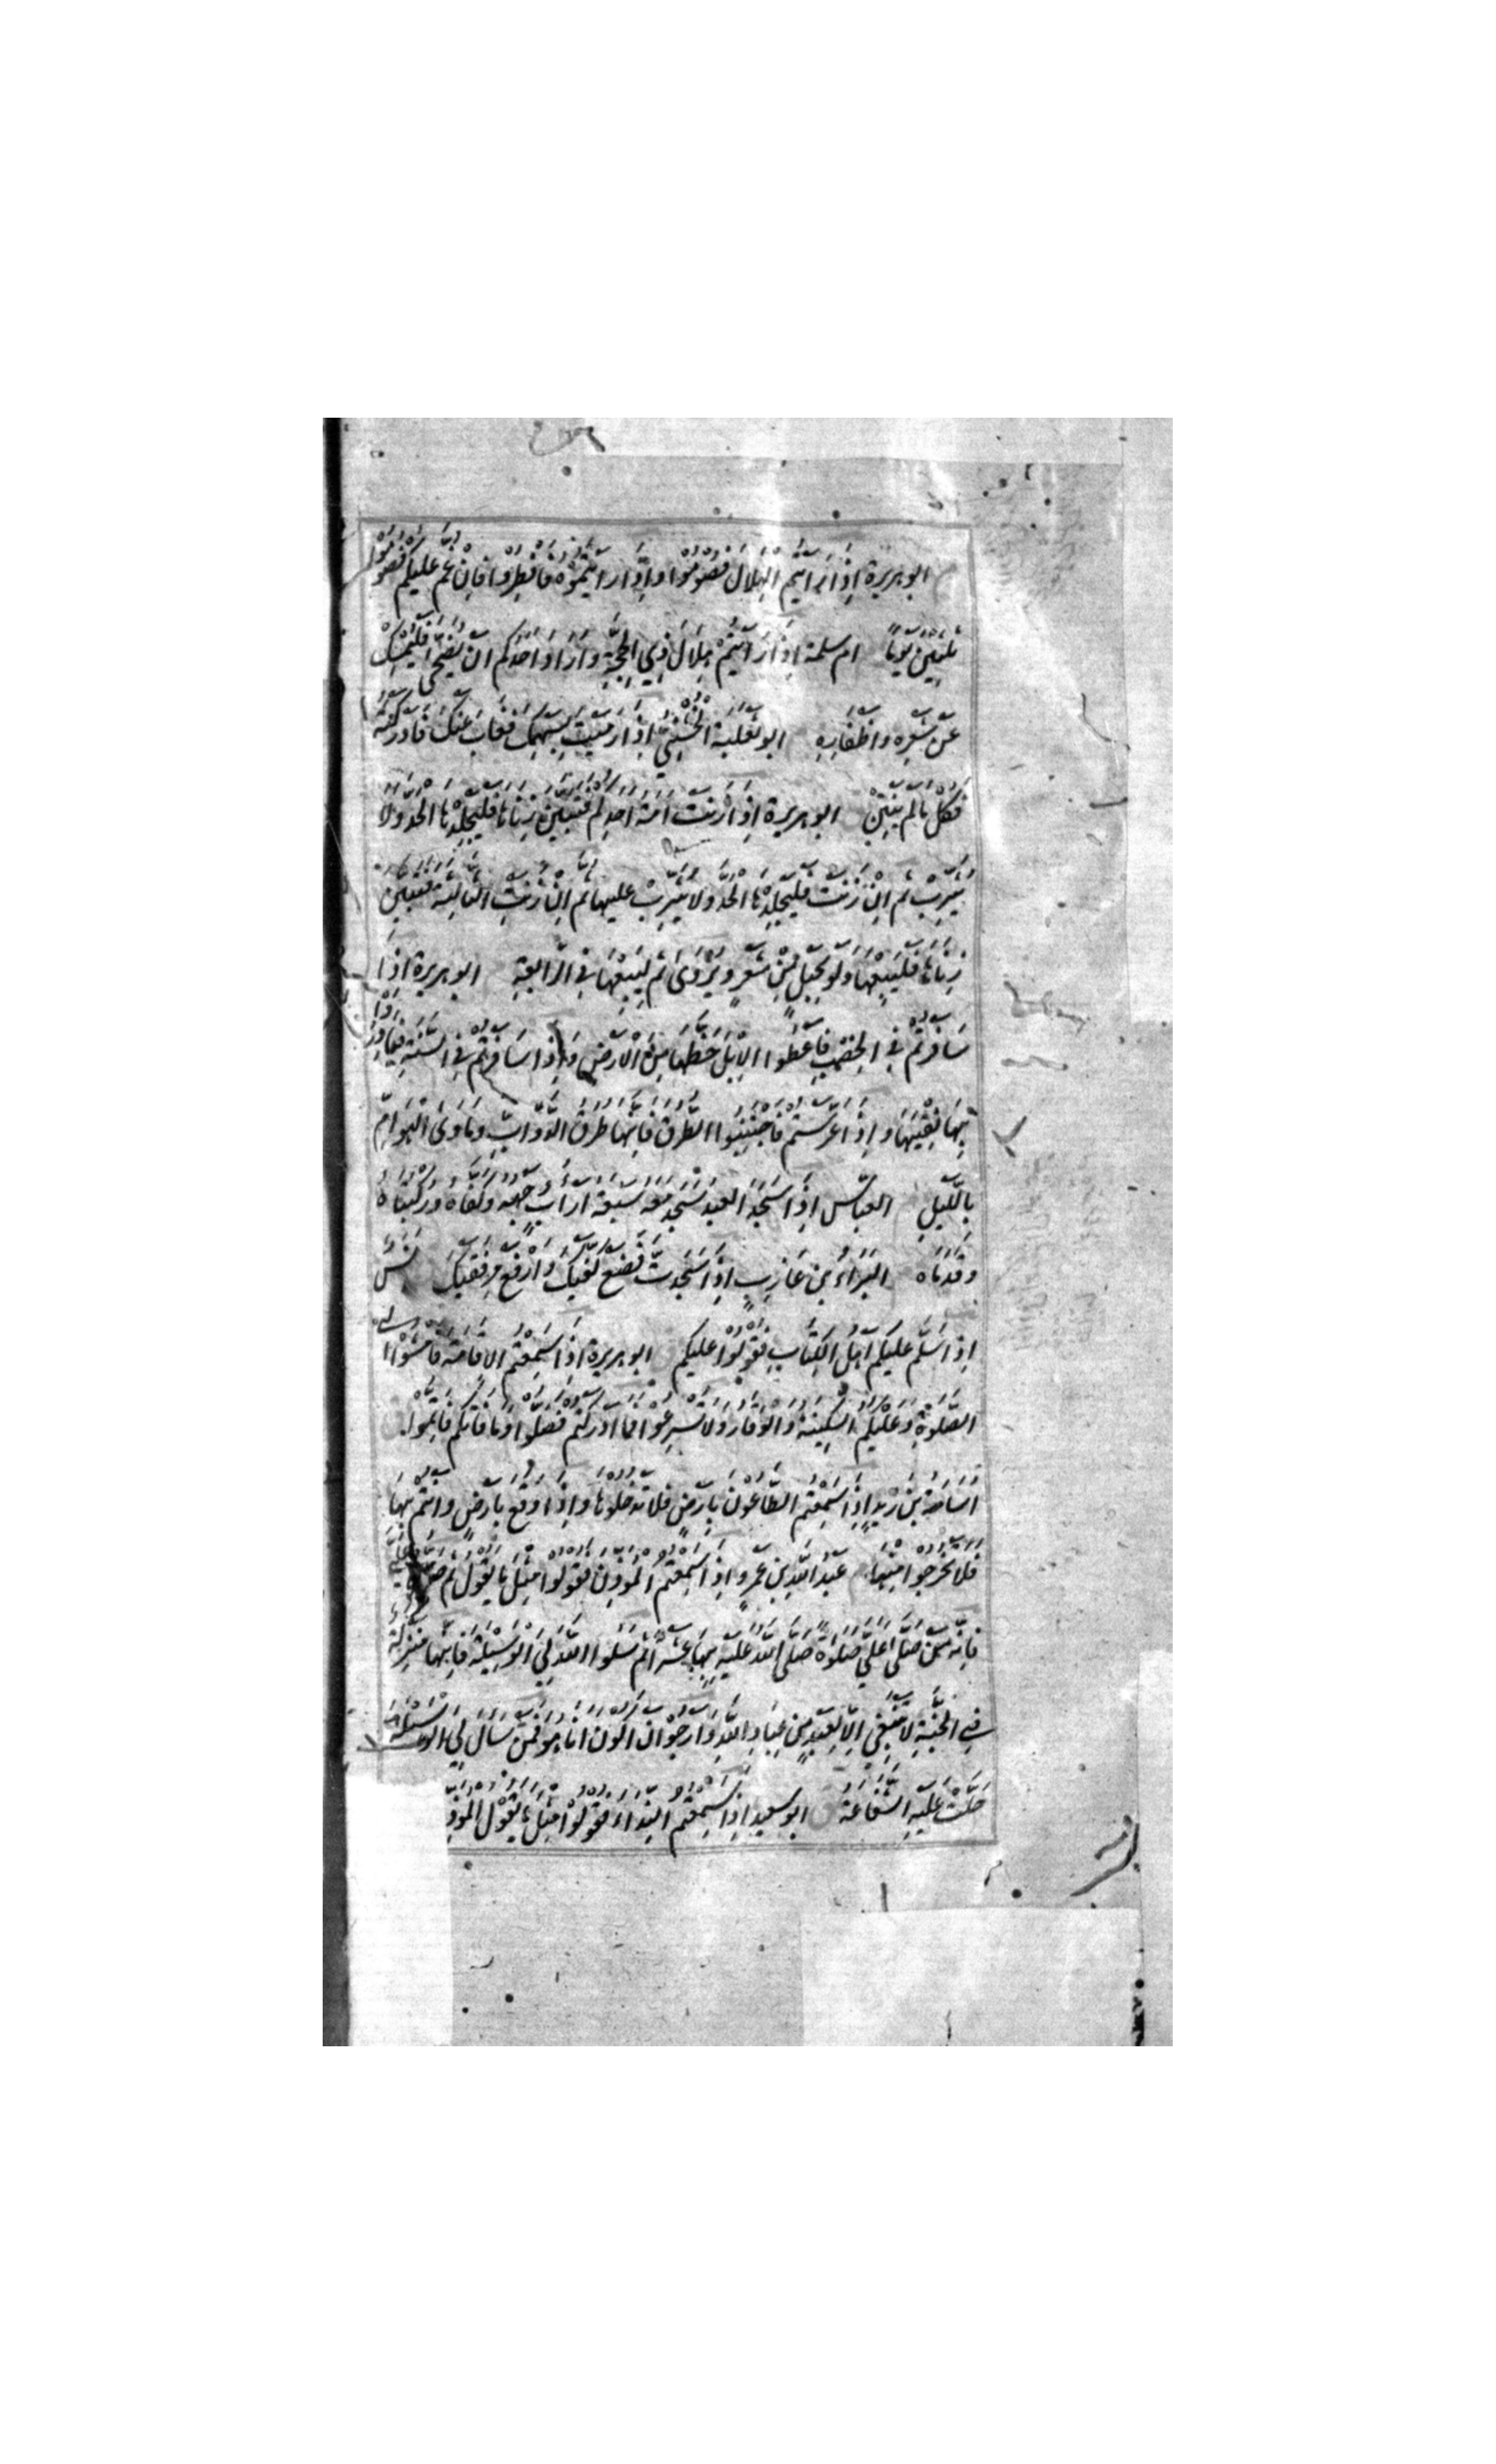 ابو هريرة اِذَا رَاَيْتُمُ الْهِلَالَ فَصُوْمُوْا وَاِذَا رَاَيْتُمُوْهُ فَافْطِرُوْا فَاِنْ غُمَّ عَلَيْكُمْ فَصُوْمُوْا
ثَلٰثِيْنَ يَوْمًا ام سلمة اِذَا رَاَيْتُمْ هِلَالَ ذِي الْحِجَّةِ وَاَرَادَ اَحَدُكُمْ اَنْ يُضَحِّيَ فَلْيُمْسِكْ
عَنْ شَعْرِهِ وَاَظْفَارِهِ ابو ثعلبة الْخُشَنِيُّ اِذَا رَمَيْتَ بِسَهْمِكَ فَغَابَ عَنْكَ فَاَدْرَكْتَهُ
فَكُلْ مَا لَمْ يُنْتِنْ ابو هريرة اِذَا زَنَتْ اَمَةُ اَحَدِكُمْ فَتَبَيَّنَ زِنَاهَا فَلْيَجْلِدْهَا الْحَدَّ وَلَا
يُثَرِّبْ ثُمَّ اِنْ زَنَتْ فَلْيَجْلِدْهَا الْحَدَّ وَلَا يُثَرِّبْ عليها ثُمَّ اِنْ زَنَتِ الثَّالِثَةَ فَتَبَيَّنَ
زِنَاهَا فَلْيَبِعْهَا وَلَوْ بِحَبْلٍ مِنْ شَعَرٍ وَيُرْوَى ثُمَّ لِيَبِعْهَا فِي الرَّابِعَةِ ابو هريرة اِذَا
سَافَرْتُمْ فِي الْخِصْبِ فَاَعْطُوا الْاِبِلَ حَظَّهَا مِنَ الْاَرْضِ وَاِذَا سَافَرْتُمْ فِي السَّنَةِ فَبَادِرُوْا
بِهَا نِقْيَهَا وَاِذَا عَرَّسْتُمْ فَاجْتَنِبُوا الطَّرِيْقَ فَاِنَّهَا طُرُقُ الدَّوَابِّ وَمَاْوَى الْهَوَامِّ
بِاللَّيْلِ العباس اِذَا سَجَدَ الْعَبْدُ سَجَدَ مَعَهُ سَبْعَةُ اٰرَابٍ وَجْهُهُ وَكَفَّاهُ وَرُكْبَتَاهُ
وَقَدَمَاهُ البَرَاءُ بن عَازِبٍ اِذَا سَجَدْتَ فَضَعْ كَفَّيْكَ وَارْفَعْ مِرْفَقَيْكَ انس
اِذَا سَلَّمَ عَلَيْكُمْ اَهْلُ الْكِتَابِ فَقُوْلُوْا عَلَيْكُمْ ابو هريرة اِذَا سَمِعْتُمُ الْاِقَامَةَ فَامْشُوْا اِلَى
الصَّلٰوةِ وَعَلَيْكُمُ السَّكِيْنَةَ وَالْوَقَارَ وَلَا تُسْرِعُوْا فَمَا اَدْرَكْتُمْ فَصَلُّوْا وَمَا فَاتَكُمْ فَاَتِمُّوْا
اُسَامَةُ بْنُ زَيْدٍ اِذَا سَمِعْتُمُ الطَّاعُوْنَ بِاَرْضٍ فَلَا تَدْخُلُوْهَا وَاِذَا وَقَعَ بِاَرْضٍ وَاَنْتُمْ بِهَا
فَلَا تَخْرُجُوْا مِنْهَا عَبْدُ اللّٰهِ بْنُ عَمْرٍو اِذَا سَمِعْتُمُ الْمُؤَذِّنَ فَقُوْلُوْا مِثْلَ مَا يَقُوْلُ ثُمَّ صَلُّوْا عَلَيَّ
فَاِنَّهُ مَنْ صَلَّى عَلَيَّ صَلٰوةً صَلَّى اللّٰهُ عَلَيْهِ بِهَا عَشْرًا ثُمَّ سَلُوا اللّٰهَ لِيَ الْوَسِيْلَةَ فَاِنَّهَا مَنْزِلَةٌ
فِي الْجَنَّةِ لَا تَنْبَغِيْ اِلَّا لِعَبْدٍ مِنْ عِبَادِ اللّٰهِ وَاَرْجُوْ اَنْ اَكُوْنَ اَنَا هُوَ فَمَنْ سَاَلَ لِيَ الْوَسِيْلَةَ
حَلَّتْ عَلَيْهِ الشَّفَاعَةُ ابو سعيد اِذَا سَمِعْتُمُ النِّدَاءَ فَقُوْلُوْا مِثْلَ مَا يَقُوْلُ الْمُؤَذِّ